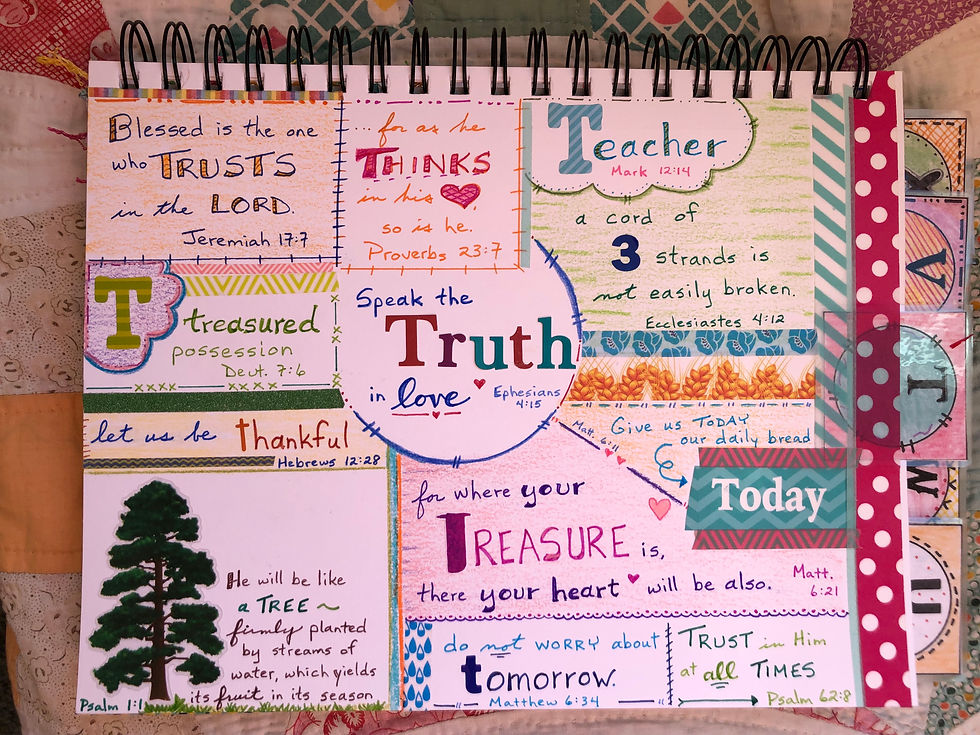 Blessed is the one
who TRUSTS
in the LORD.
Jeremiah 17:7
... for as he
THINKS
in his
so is he.
Proverbs 23:7
Teacher
Mark 12:14
a cord of
3 strands is
not easily broken.
Ecclesiastes 4:12
T
treasured
possession
Deut. 7:6
Speak the
Truth
in love
Ephesians
4:15
let us be thankful
Hebrews 12:28
Give us TODAY
our daily bread
Matt. 6:11
Today
for where your
TREASURE is,
there your heart will be also.
Matt.
6:21
He will be like
a TREE ~
firmly planted
by streams of
water, which yields
its fruit in its season
Psalm 1:1
do not WORRY about
tomorrow.
Matthew 6:34
TRUST in Him
at all TIMES
Psalm 62:8
V
T
W